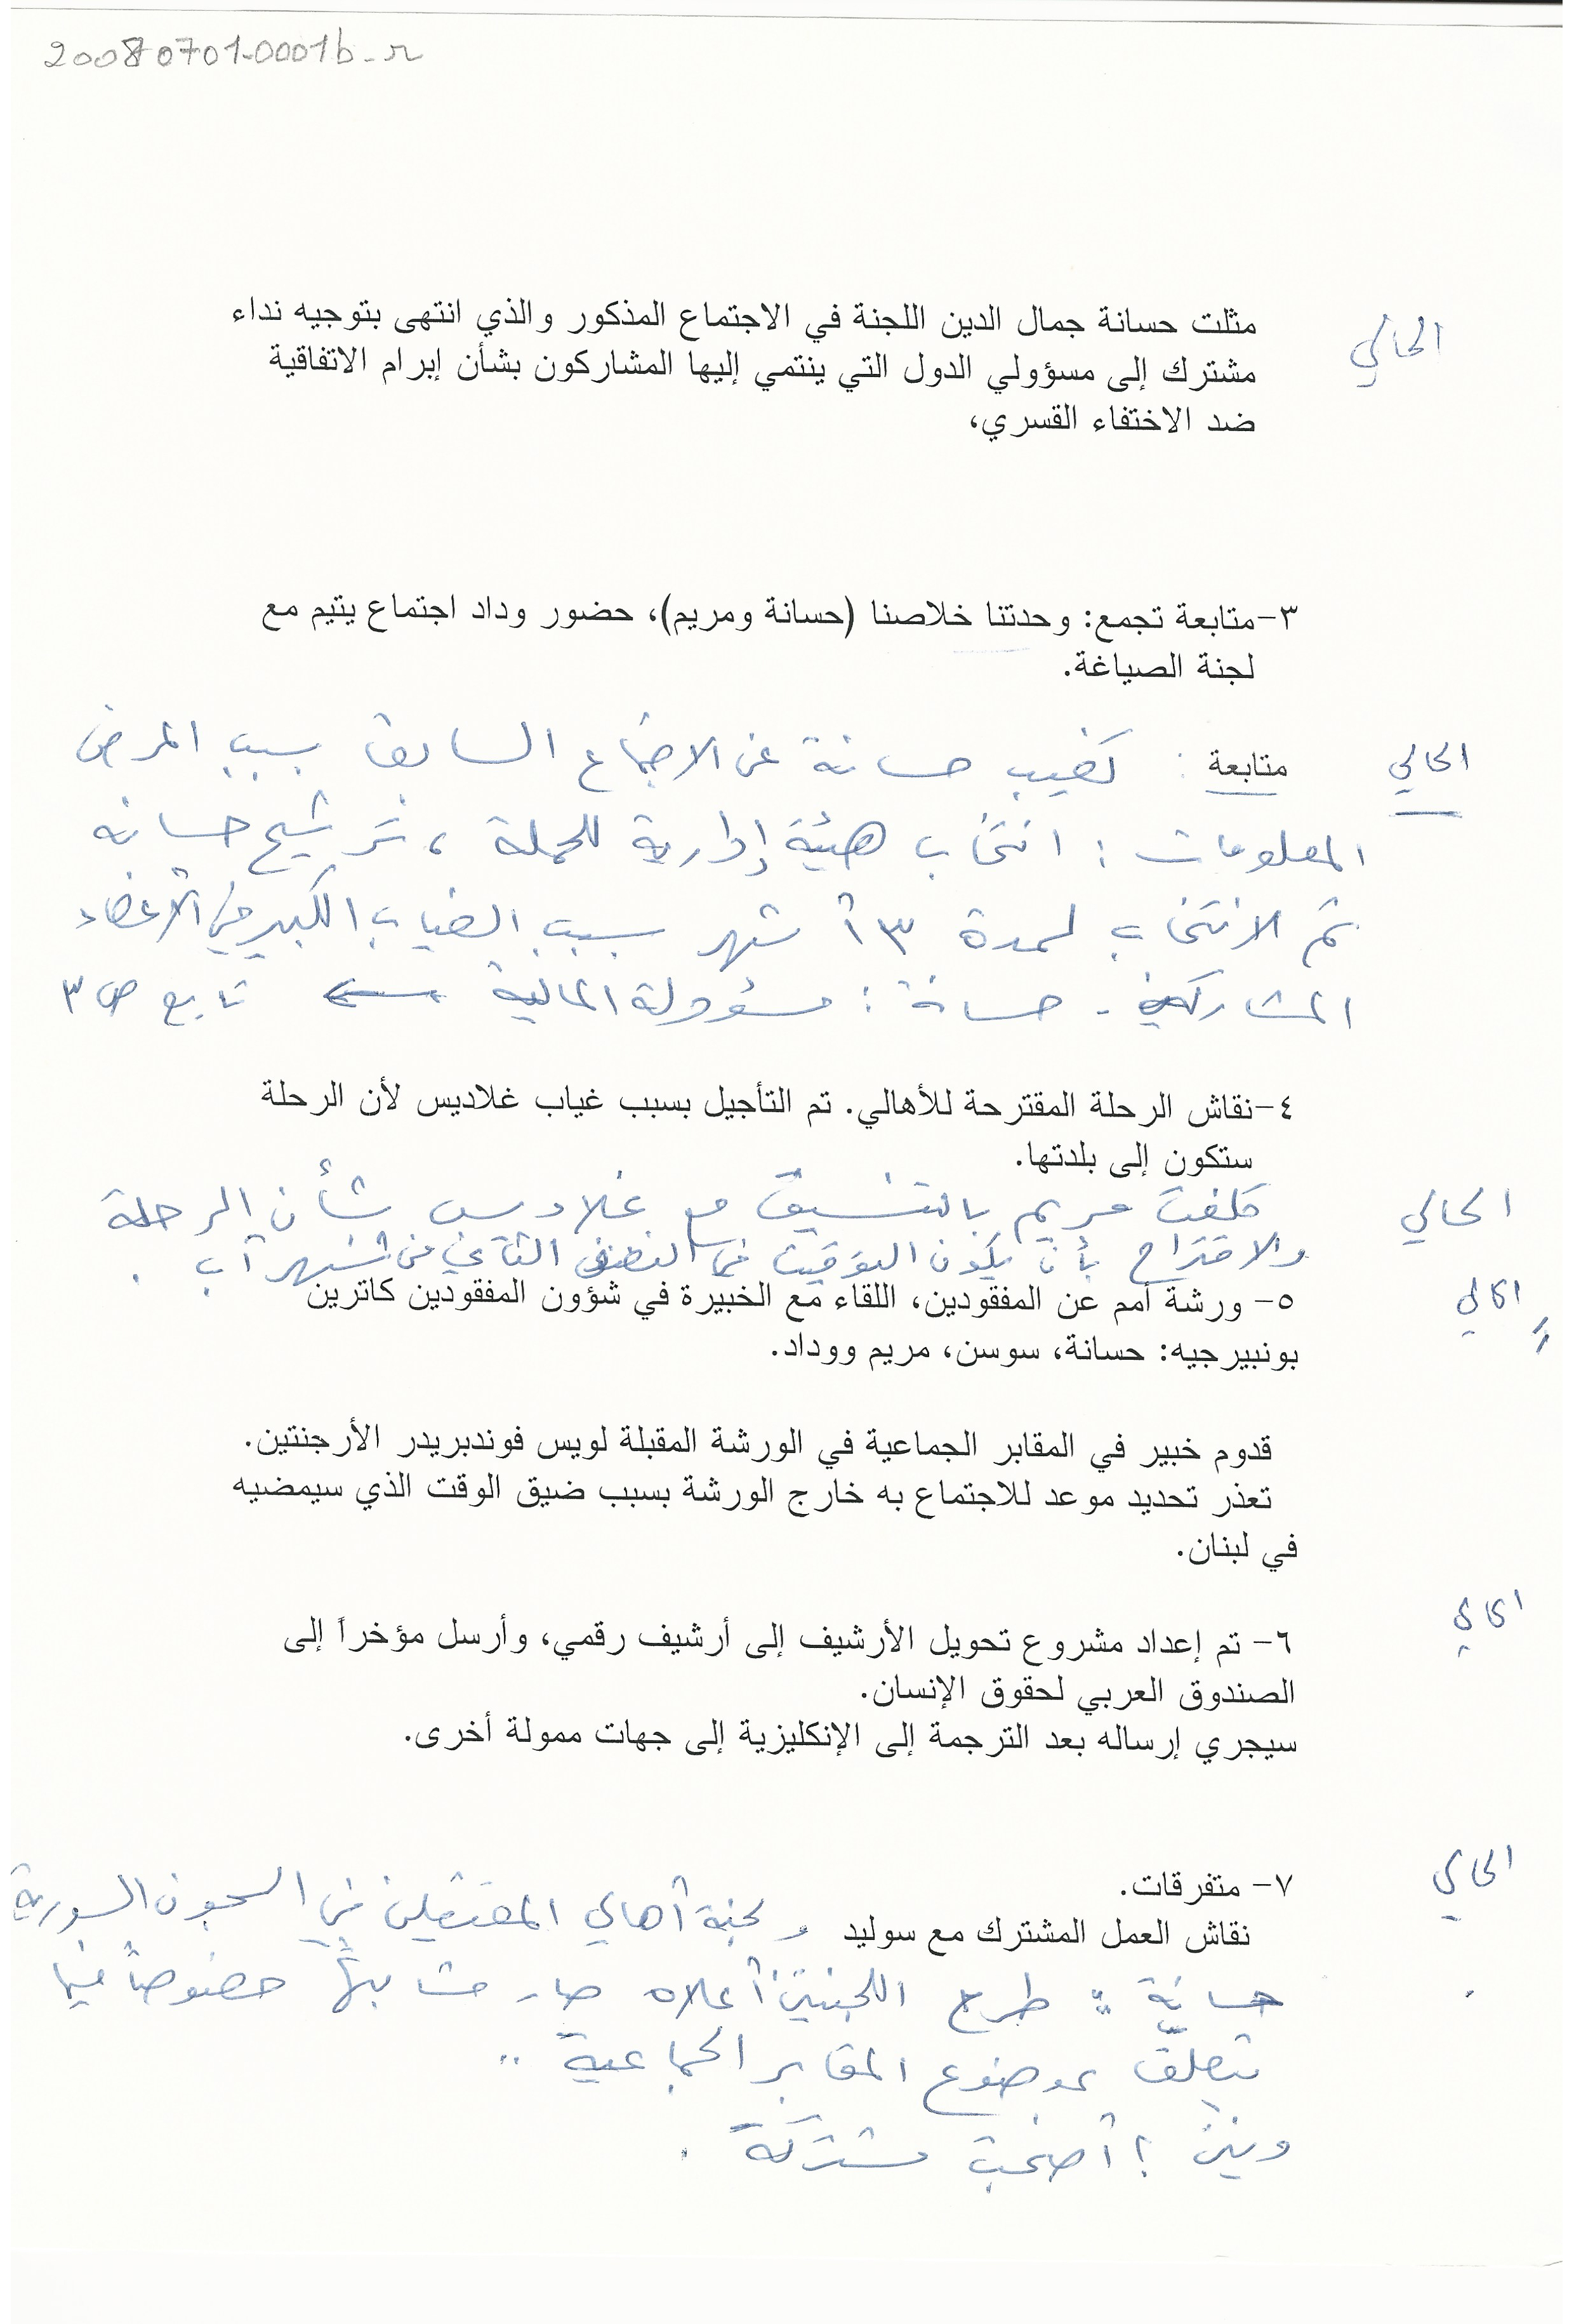 20080701-0001b-r
الحالي
مثلت حسانة جمال الدين اللجنة في الاجتماع المذكور والذي انتهى بتوجيه نداء
مشترك إلى مسؤولي الدول التي ينتمي إليها المشاركون بشأن إبرام الاتفاقية
ضد الاختفاء القسري،
٣-متابعة تجمع: وحدتنا خلاصنا (حسانة ومريم)، حضور وداد اجتماع يتيم مع
لجنة الصياغة.
الحالي
متابعة : تغيب حسانة عن الاجتماع السابق بسبب المرض
المعلومات : انتخاب هيئة إدارية للحملة ، ترشيح حسانة
تم الانتخاب لمدة ٣ أشهر بسبب الغياب الكبير في الأعضاء
المشاركين . حسانة : مسؤولة المالية ← تابع ص ٣
٤-نقاش الرحلة المقترحة للأهالي. تم التأجيل بسبب غياب غلاديس لأن الرحلة
ستكون إلى بلدتها.
الحالي
كلفت مريم بالتنسيق مع غلاديس بشأن الرحلة
والاقتراح بأن يكون التوقيت في النصف الثاني من شهر آب .
الحالي
٥- ورشة أمم عن المفقودين، اللقاء مع الخبيرة في شؤون المفقودين كاترين
بونبيرجيه: حسانة، سوسن، مريم ووداد.
قدوم خبير في المقابر الجماعية في الورشة المقبلة لويس فوندبريدر الأرجنتين.
تعذر تحديد موعد للاجتماع به خارج الورشة بسبب ضيق الوقت الذي سيمضيه
في لبنان.
الحالي
٦- تم إعداد مشروع تحويل الأرشيف إلى أرشيف رقمي، وأرسل مؤخراً إلى
الصندوق العربي لحقوق الإنسان.
سيجري إرساله بعد الترجمة إلى الإنكليزية إلى جهات ممولة أخرى.
الحالي
٧- متفرقات.
نقاش العمل المشترك مع سوليد و لجنة أهالي المعتقلين في السجون السورية
حسانة : طرح اللجنتين أعلاه صار متشابهاً خصوصاً فيما
يتعلق بموضوع المقابر الجماعية ..
أضحت مشتركة .